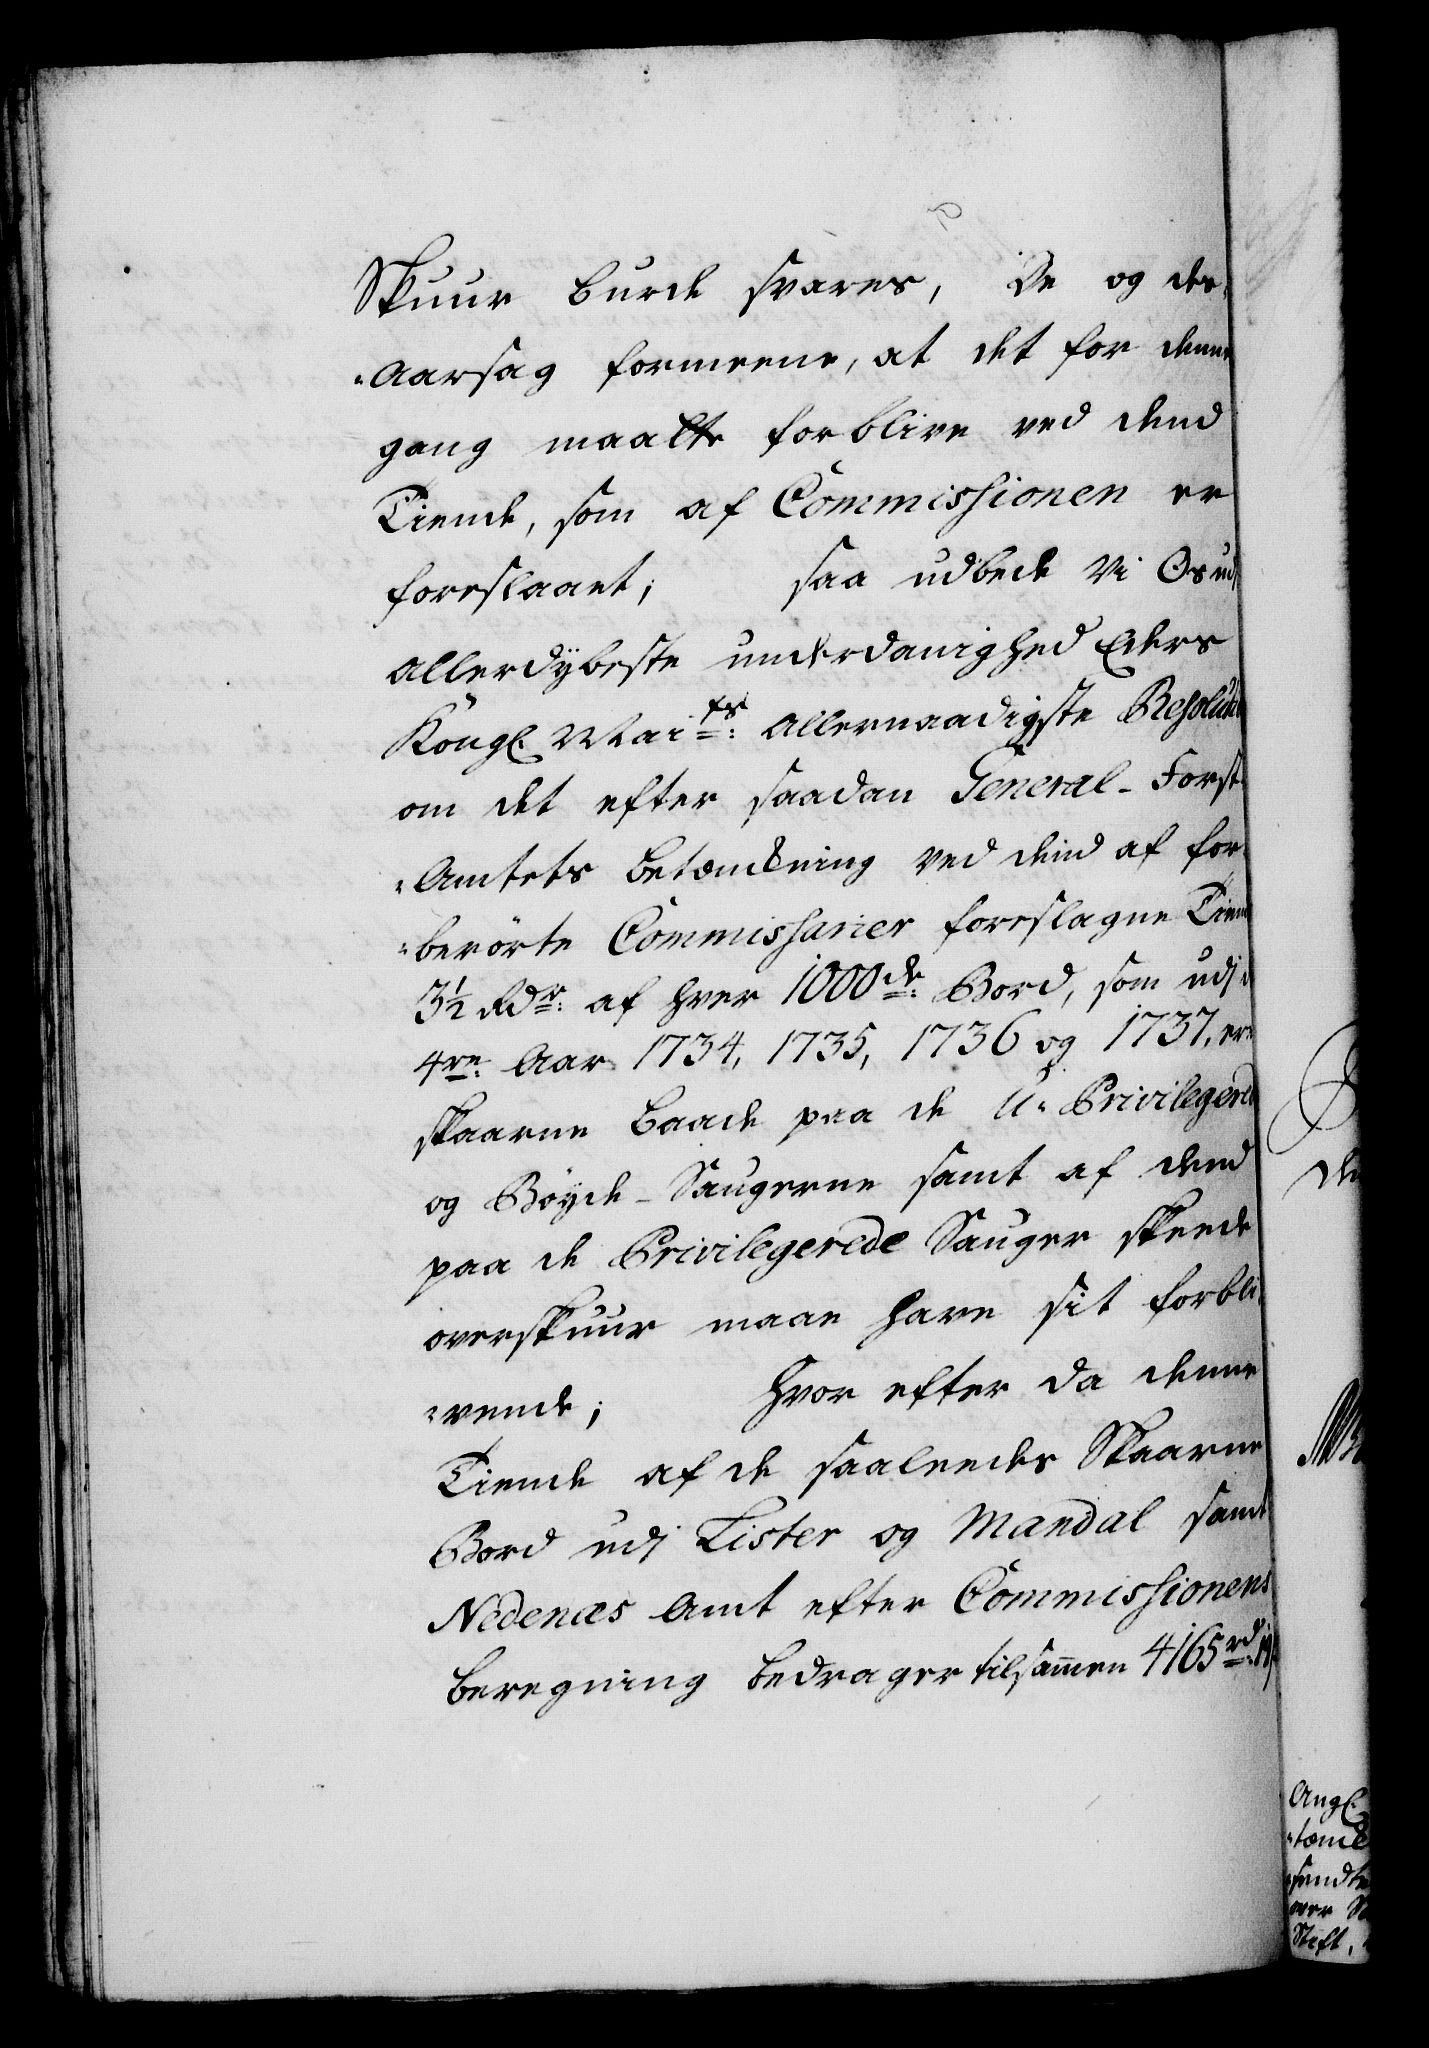 Skuur burde svares, De og der¬
"Aarsag formeene, at det for denne
gang maatte forblive ved dend
Tiende, som af Commissionen er
foreslaaet; saa udbede Vi Os udj
allerdÿbeste underdanighed Eders
Kongl. Mai:ts allernaadigste Resolution
om det efter saadan General-Forst¬
"Amtets betænkning ved dend af for¬
"berörte Commissarier foreslagne Tiende
3½ Rdr: af hver 1000de Bord, som udj d
4re: Aar 1734, 1735, 1736 og 1737, ere
skaarne baade paa de U-Privilegerede
og Böyde-Saugerne samt af dend
paa de Privilegerede Sauger skeede
overskuur maae have sit forbli¬
"vende; Hvor efter da denne
Tiende af de saaleedes Skaarne
Bord udj Lister og Mandal samt
Nedenæs Amt efter Commissionens
beregning bedrager tilsammen 4165 rd: